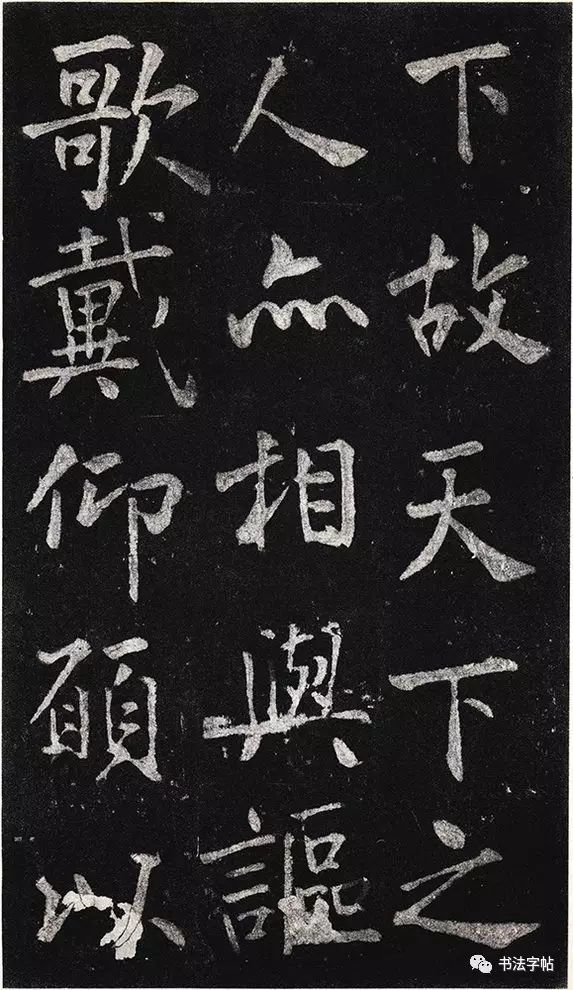 下故天下之
人亦相與謳
歌戴仰願以
书法字帖